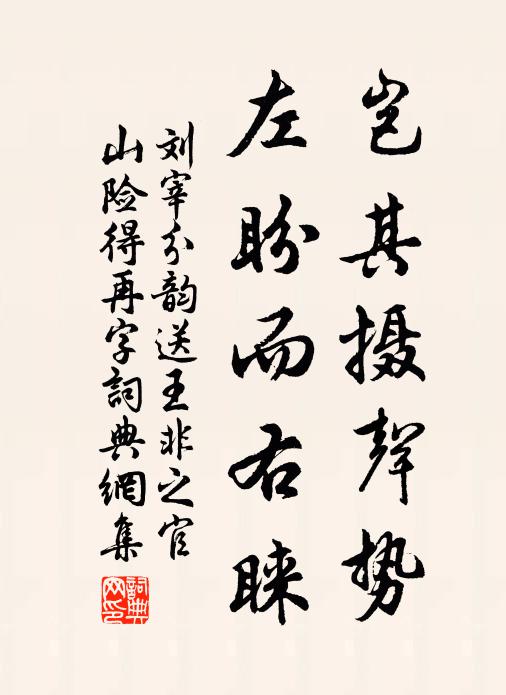 岂其摄聲势
左盼而右睐
刘宰分韵送王非之官
山险得再字詞典網集
詞典
网印